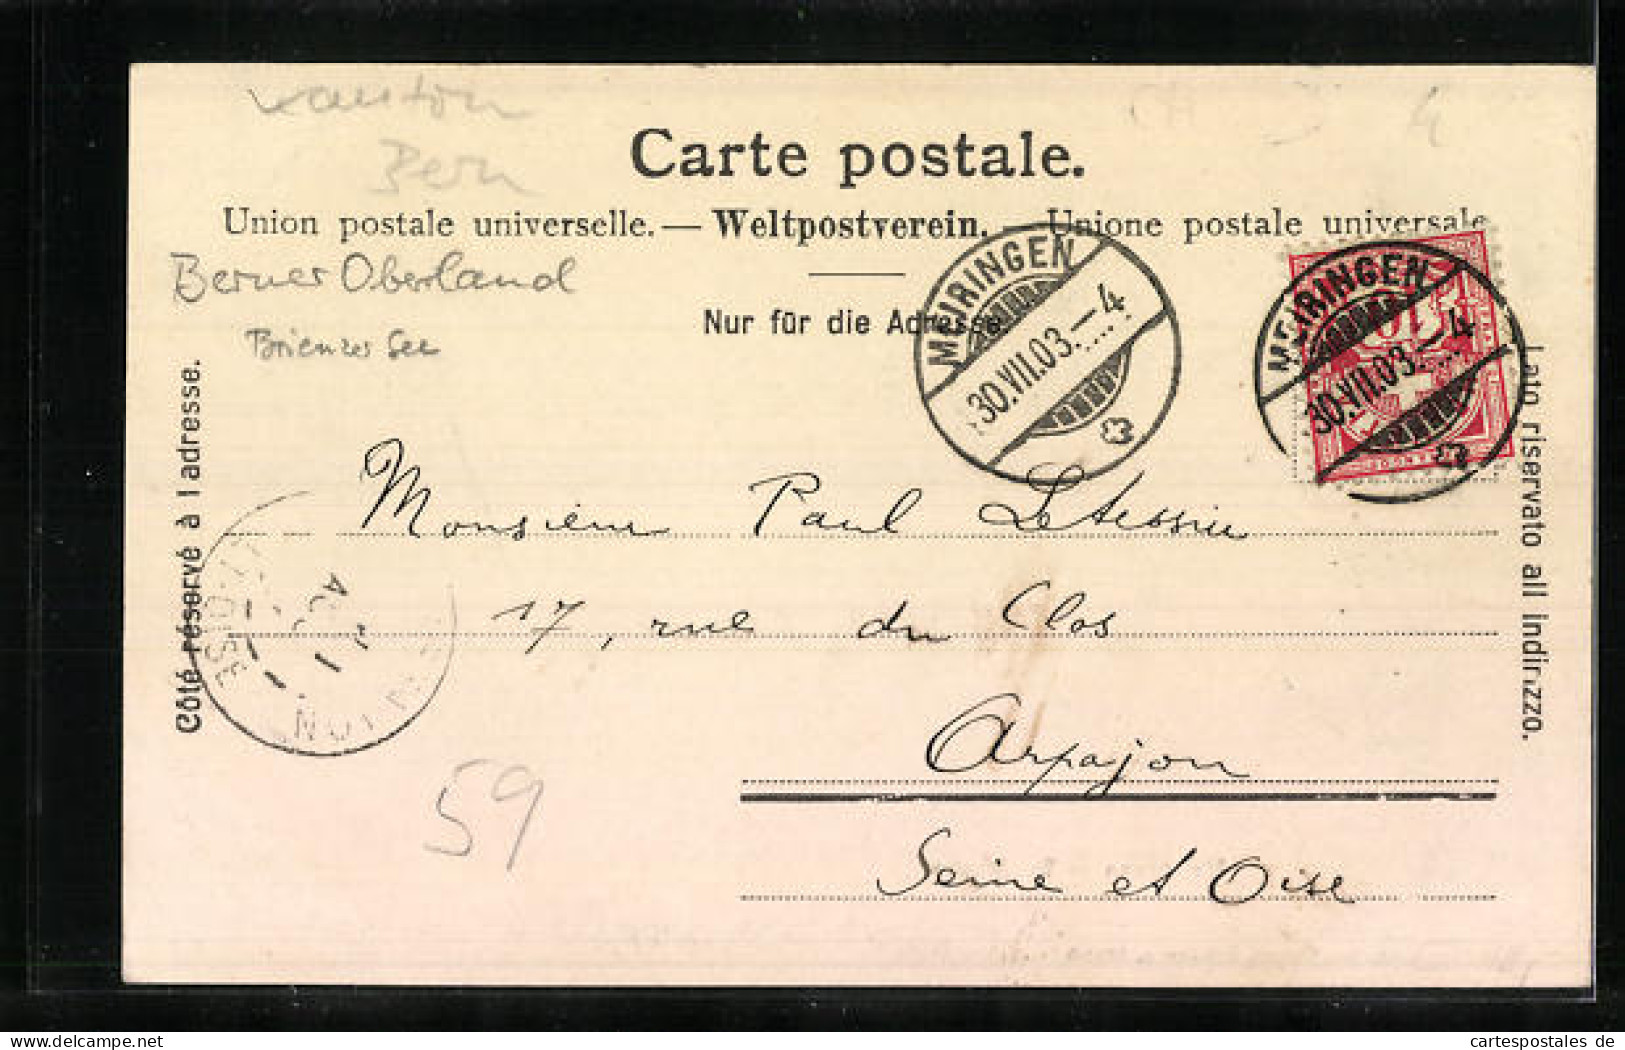 Kanton
Bern
4
Carte postale.
Union postale universelle. — Weltpostverein. — Unione postale universale
Berner Oberland
Nur für die Adresse.
Brienzer See
MEIRINGEN
30.VII.03.–4
MEIRINGEN
30.VII.03.–4
10
Côté réservé à l adresse.
Lato riservato all indirizzo.
Monsieur Paul Letessier
17, rue du Clos
Arpajon
Seine et Oise
59
cartespostales de